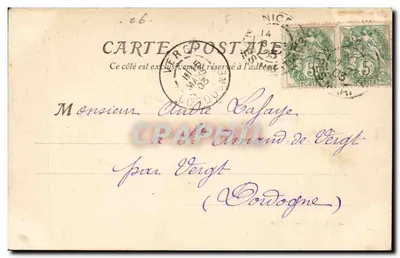 06
CARTE POSTALE
Ce côté est exclusivement réservé à l'adresse
NICE
14
VERGT
MARS
03
DORDOGNE
5
Monsieur André Lafaye
à St Amand de Vergt
par Vergt
(Dordogne)
CPAPHIL